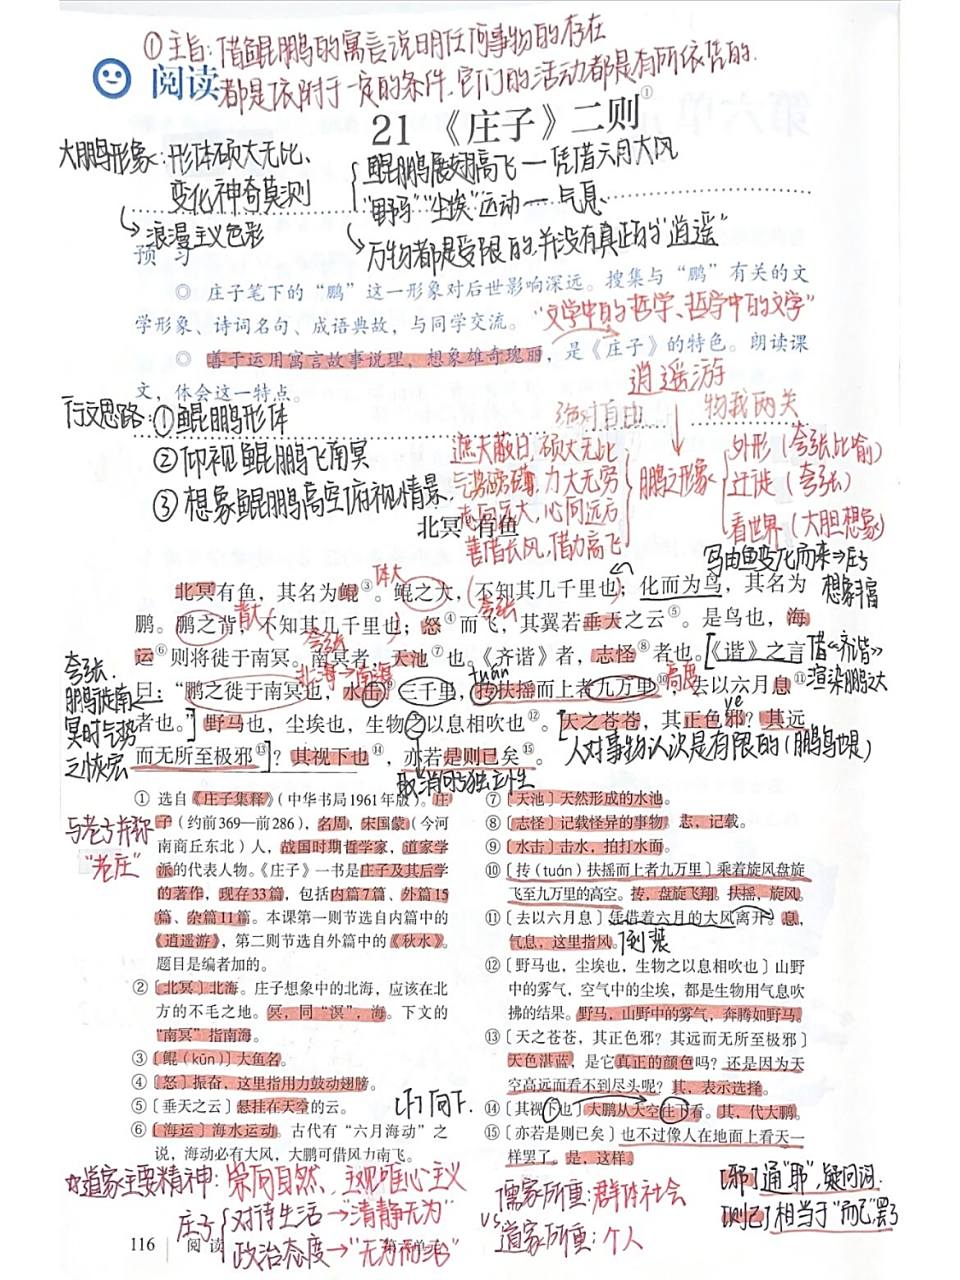 ①主旨:借鲲鹏的寓言说明任何事物的存在
都是依附于一定的条件,它们的活动都是有所依凭的.
阅读
21 《庄子》二则①
大鹏鸟形象:形体硕大无比、
变化神奇莫测
↳浪漫主义色彩
鲲鹏展翅高飞—凭借六月大风
"野马""尘埃"运动—气息
↳万物都是受限的,并没有真正的"逍遥"
预 习
◎ 庄子笔下的“鹏”这一形象对后世影响深远。搜集与“鹏”有关的文
学形象、诗词名句、成语典故，与同学交流。
"文学中的哲学、哲学中的文学"
◎ 善于运用寓言故事说理，想象雄奇瑰丽，是《庄子》的特色。朗读课
文，体会这一特点。
逍遥游
绝对自由 物我两失
行文思路:①鲲鹏形体
②仰视鲲鹏飞南冥
③想象鲲鹏高空俯视情景.
遮天蔽日,硕大无比
气势磅礴,力大无穷
志向远大,心向远方
善借长风,借力高飞
鹏之形象
外形(夸张,比喻)
迁徙(夸张)
看世界(大胆想象)
北冥②有鱼
写由鱼变化而来⇒庄子
想象丰富
体大
北冥有鱼，其名为鲲③。鲲之大，不知其几千里也；化而为鸟，其名为
背大 夸张
鹏。鹏之背，不知其几千里也；怒④而飞，其翼若垂天之云⑤。是鸟也，海
夸张
运⑥则将徙于南冥。南冥者，天池⑦也。《齐谐》者，志怪⑧者也。《谐》之言
借《齐谐》
渲染鹏之大
北海→南海 tuán 高度
曰：“鹏之徙于南冥也，水击⑨三千里，抟扶摇而上者九万里⑩，去以六月息⑪
夸张.
鹏鸟徙南
冥时气势
之恢宏
yé
者也。”野马也，尘埃也，生物之以息相吹也⑫。天之苍苍，其正色邪？其远
而无所至极邪⑬？其视下也⑭，亦若是则已矣⑮。
人对事物认识是有限的(鹏鸟也是)
取消句子独立性
① 选自《庄子集释》（中华书局1961年版）。庄
子（约前369—前286），名周，宋国蒙（今河
南商丘东北）人，战国时期哲学家，道家学
派的代表人物。《庄子》一书是庄子及其后学
的著作，现存33篇，包括内篇7篇、外篇15
篇、杂篇11篇。本课第一则节选自内篇中的
《逍遥游》，第二则节选自外篇中的《秋水》。
题目是编者加的。
与老子并称
"老庄"
②〔北冥〕北海。庄子想象中的北海，应该在北
方的不毛之地。冥，同“溟”，海。下文的
“南冥”指南海。
③〔鲲（kūn）〕大鱼名。
④〔怒〕振奋，这里指用力鼓动翅膀。
⑤〔垂天之云〕悬挂在天空的云。
⑥〔海运〕海水运动。古代有“六月海动”之
说，海动必有大风，大鹏可借风力南飞。
⑦〔天池〕天然形成的水池。
⑧〔志怪〕记载怪异的事物。志，记载。
⑨〔水击〕击水，拍打水面。
⑩〔抟（tuán）扶摇而上者九万里〕乘着旋风盘旋
飞至九万里的高空。抟，盘旋飞翔。扶摇，旋风。
⑪〔去以六月息〕凭借着六月的大风离开。息，
气息，这里指风。
倒装
⑫〔野马也，尘埃也，生物之以息相吹也〕山野
中的雾气，空气中的尘埃，都是生物用气息吹
拂的结果。野马，山野中的雾气，奔腾如野马。
⑬〔天之苍苍，其正色邪？其远而无所至极邪〕
天色湛蓝，是它真正的颜色吗？还是因为天
空高远而看不到尽头呢？其，表示选择。
⑭〔其视下也〕大鹏从天空往下看。其，代大鹏。
⑮〔亦若是则已矣〕也不过像人在地面上看天一
样罢了。是，这样。
☆道家主要精神:崇尚自然、主观唯心主义
庄子
对待生活→"清静无为"
政治态度→"无为而治"
儒家所重:群体社会
VS
道家所重:个人
[邪]通"耶",疑问词.
[则已]相当于"而已"罢了
116 阅读 第六单元